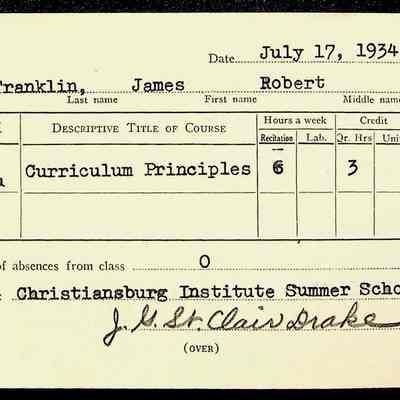 Date July 17, 1934
Franklin, James Robert
Last name First name Middle name
Hours a week Credit
DESCRIPTIVE TITLE OF COURSE Recitation Lab. Qr. Hrs Uni
Curriculum Principles 6 3
of absences from class 0
Christiansburg Institute Summer Scho
J. G. St. Clair Drake
(OVER)